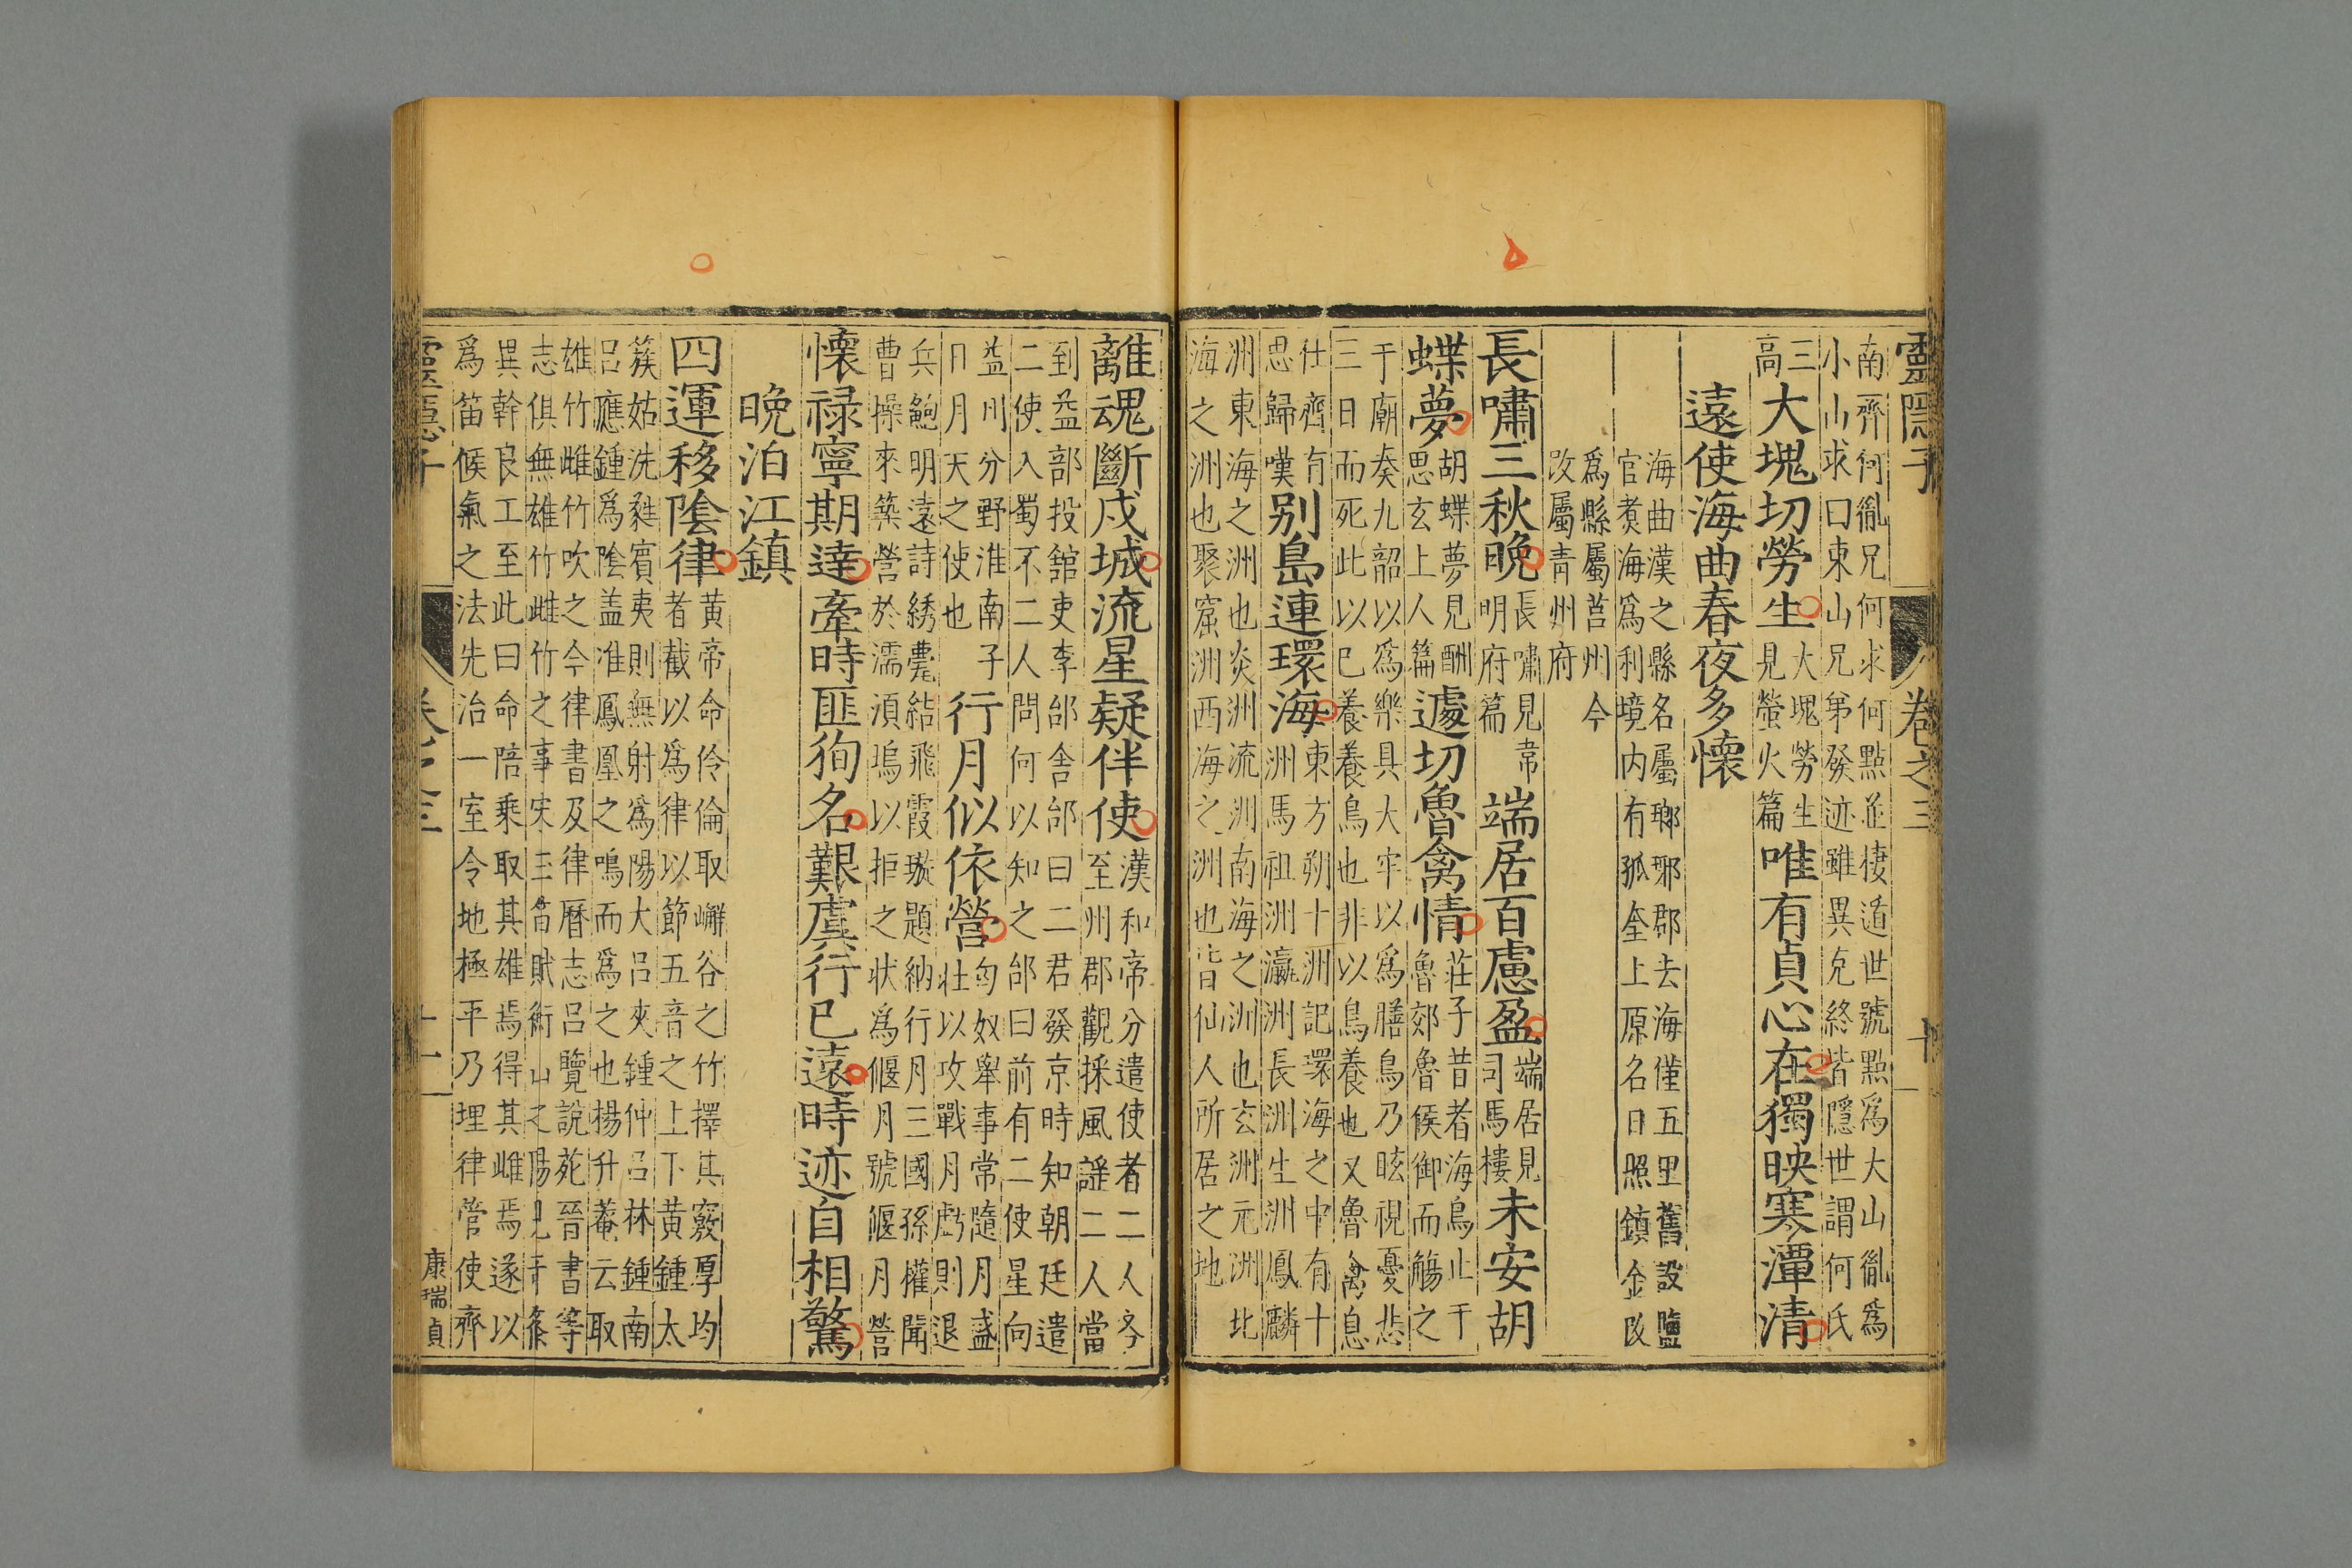 靈隱子 卷之三
南齊何胤兄何求何點並棲遁世號點爲大山胤爲
小山求曰東山兄弟發迹雖異克終皆隱世謂何氏
三
高
大塊切勞生
大塊勞生
見螢火篇
唯有貞心在獨映寒潭清
遠使海曲春夜多懷
海曲漢之縣名屬瑯琊郡去海僅五里舊設鹽
官煑海爲利境内有孤奎上原名日照鎮金改
爲縣屬莒州今
改屬青州府
長嘯三秋晚
長嘯見常
明府篇
端居百慮盈
端居見
司馬樓
未安胡
蝶夢
胡蝶夢見酬
思玄上人篇
遽切魯禽情
莊子昔者海鳥止于
魯郊魯侯御而觴之
于廟奏九韶以爲樂具大牢以爲膳鳥乃眩視憂悲
三日而死此以已養養鳥也非以鳥養養也又魯禽息
仕齊有
思歸嘆
别島連環海
東方朔十洲記環海之中有十
洲馬祖洲瀛洲長洲生洲鳳麟
洲東海之洲也炎洲流洲南海之洲也玄洲元洲北
海之洲也聚窟洲西海之洲也皆仙人所居之地
離魂斷戍城流星疑伴使
漢和帝分遣使者二人各
至州郡觀採風謡二人當
到益部投舘吏李郃舍郃曰二君發京時知朝廷遣
二使入蜀不二人問何以知之郃曰前有二使星向
益州分野淮南子
日月天之使也
行月似依營
匈奴舉事常隨月盛
壯以攻戰月虧則退
兵鮑明遠詩綉甍結飛霞璇題納行月三國孫權聞
曹操來築營於濡湏塢以拒之状爲偃月號偃月營
懷禄寧期達牽時匪徇名艱虞行已遠時迹自相驚
晚泊江鎮
四運移陰律
黄帝命伶倫取嶰谷之竹擇其竅厚均
者截以爲律以節五音之上下黄鍾太
簇姑洗蕤賓夷則無射爲陽大吕夾鍾仲吕林鍾南
吕應鍾爲陰盖准鳳凰之鳴而爲之也楊升菴云取
雄竹雌竹吹之今律書及律曆志吕覽説苑晉書等
志俱無雄竹雌竹之事宋玉笛賦衡山之陽見奇篠
異幹良工至此曰命陪乘取其雄焉得其雌焉遂以
爲笛候氣之法先治一室令地極平乃埋律管使齊
卷之三
十一
康瑞貞